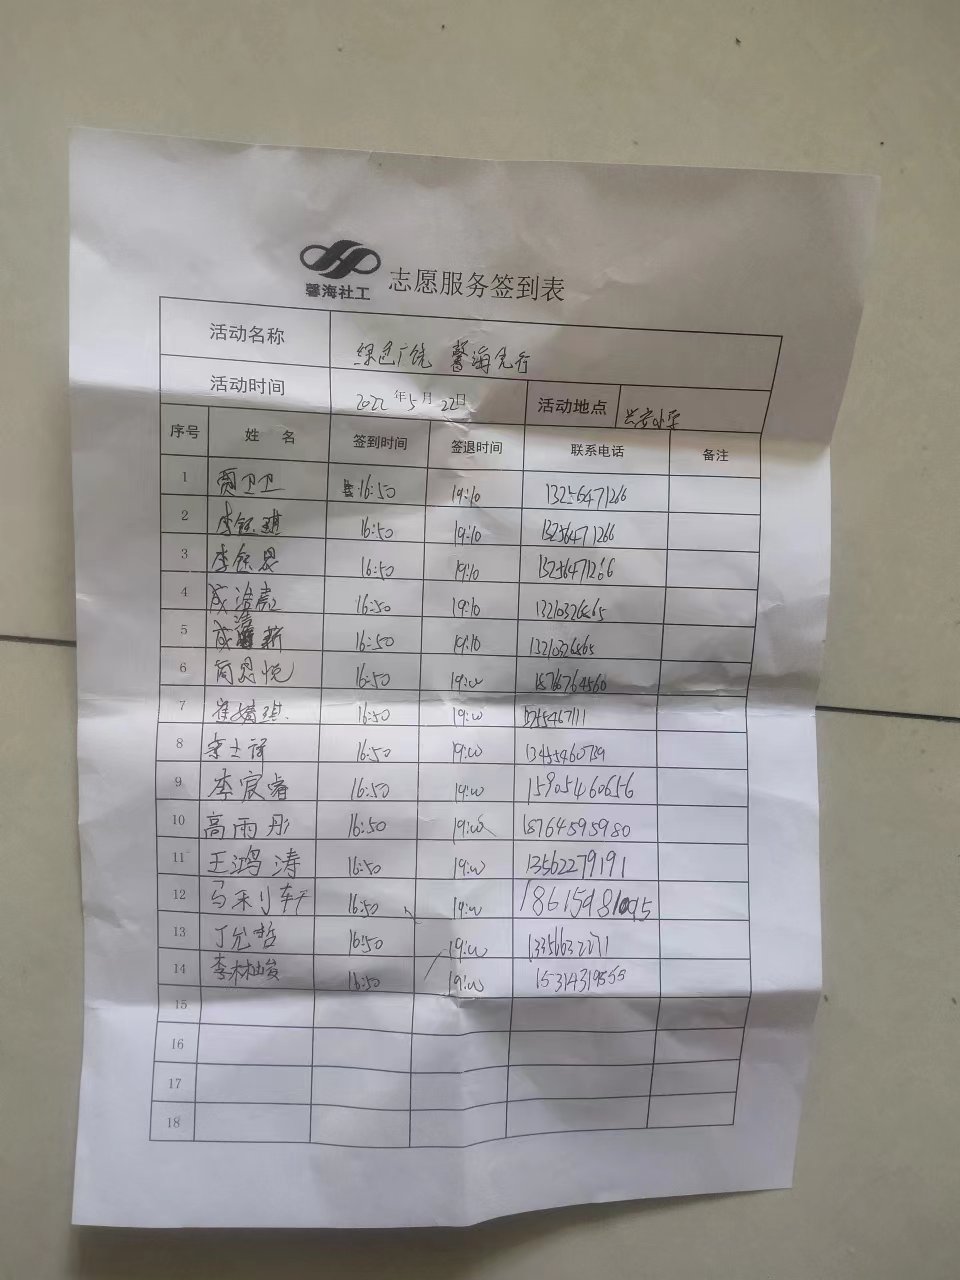 馨海社工 志愿服务签到表
活动名称 绿色广饶 馨海先行
活动时间 2022年5月22日 活动地点
序号 姓 名 签到时间 签退时间 联系电话 备注
1 贾卫卫 16:50 19:10 13256471266
2 李钰琪 16:50 19:10 13256471266
3 李钰恩 16:50 19:10 13256471266
4 16:50 19:10 13210326865
5 16:50 19:10 13210326865
6 16:50 19:00 18766764560
7 崔婧琪 16:50 19:00
8 16:50 19:00 13455460739
9 李宸睿 16:50 19:00 15905460656
10 高雨彤 16:50 19:00 18764595980
11 王鸿涛 16:50 19:00 13562279191
12 16:50 19:00
13 丁允哲 16:50 19:00
14 16:50 19:00
15
16
17
18